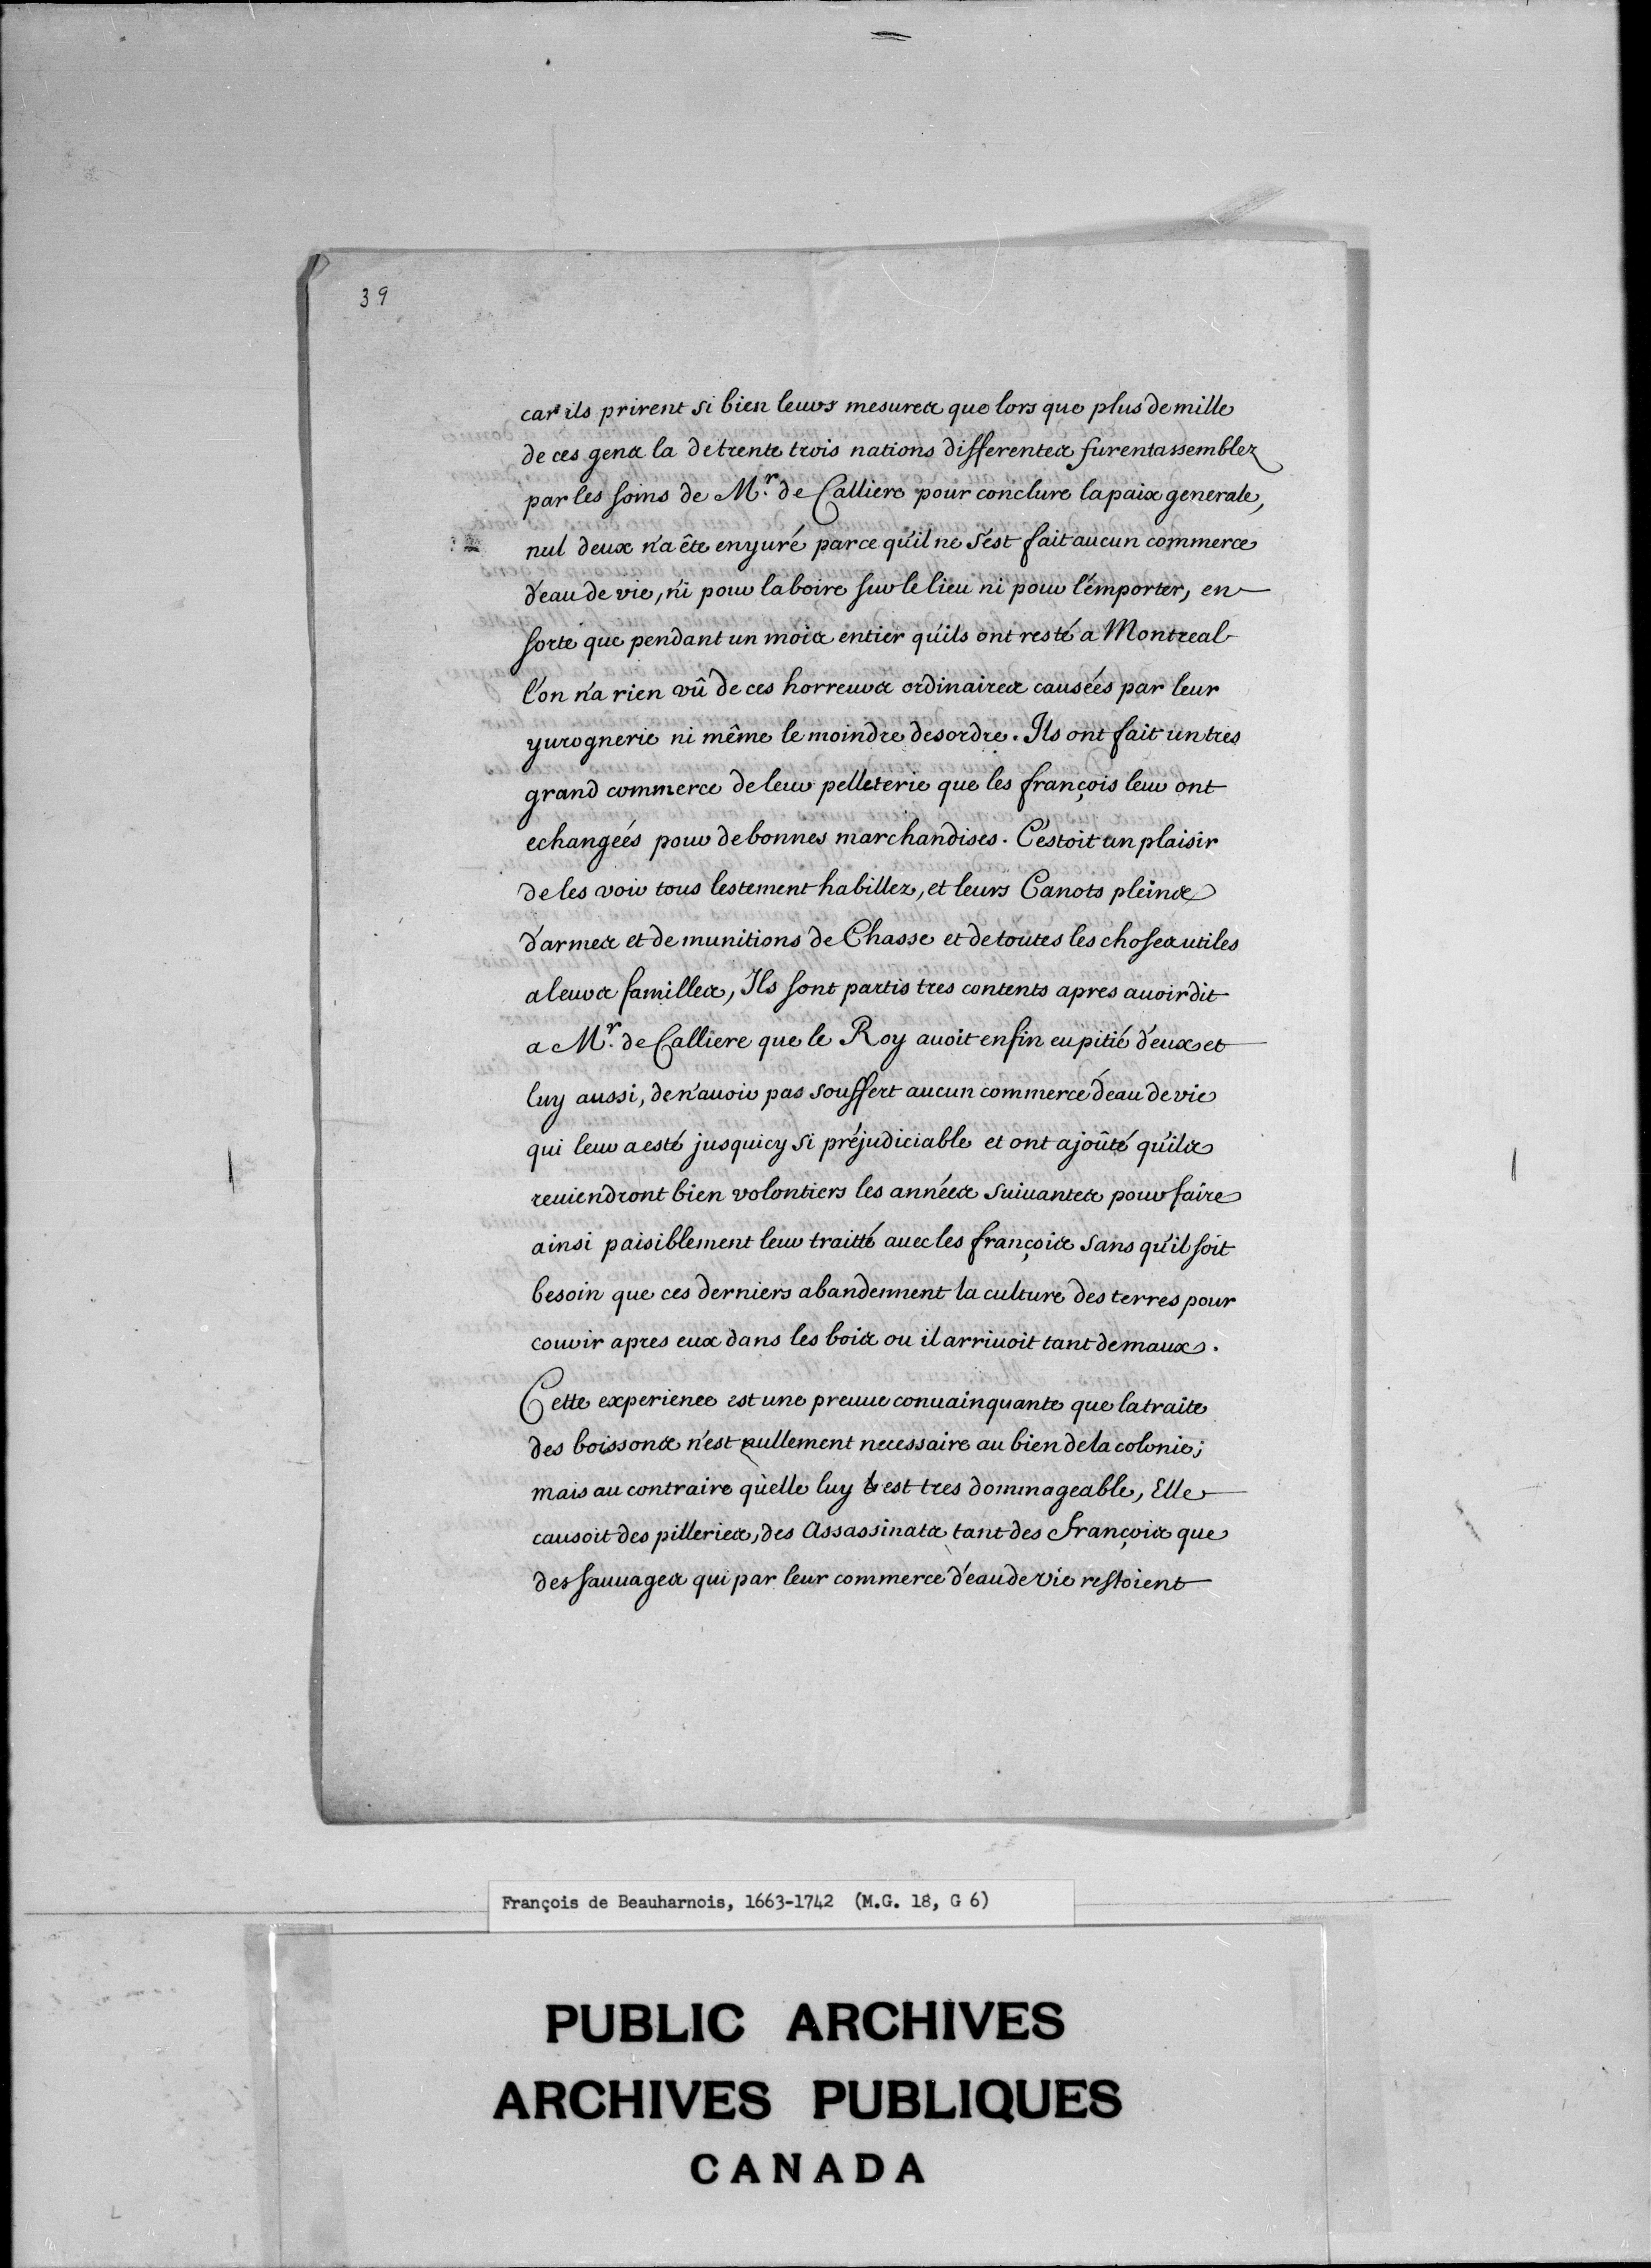 39
car ils prirent si bien leurs mesures que lors que plus de mille
de ces gens la de trente trois nations differentes furent assemblez
par les soins de Mr. de Calliere pour conclure la paix generale,
nul deux n'a ête enyuré parce qu'il ne s'est fait aucun commerce
d'eau de vie, ni pour la boire sur le lieu ni pour l'emporter, en
sorte que pendant un mois entier qu'ils ont resté a Montreal
l'on n'a rien vû de ces horreurs ordinaires causées par leur
yurognerie ni même le moindre desordre. Ils ont fait un tres
grand commerce de leur pelleterie que les françois leur ont
echangeés pour de bonnes marchandises. C'estoit un plaisir
de les voir tous lestement habillez, et leurs Canots pleins
d'armes et de munitions de Chasse et de toutes les choses utiles
a leurs familles, Ils sont partis tres contents apres auoir dit
a Mr. de Calliere que le Roy auoit enfin eu pitié d'eux et
luy aussi, de n'auoir pas souffert aucun commerce d'eau de vie
qui leur a esté jusquicy si préjudiciable et ont ajoûté qu'ils
reuiendront bien volontiers les années suiuantes pour faire
ainsi paisiblement leur traitté auec les françois sans qu'il soit
besoin que ces derniers abandennent la culture des terres pour
courir apres eux dans les bois ou il arriuoit tant de maux.
Cette experience est une preuue conuainquante que la traite
des boissons n'est nullement necessaire au bien de la colonie;
mais au contraire qu'elle luy est tres dommageable, Elle
causoit des pilleries, des Assassinats tant des François que
des sauuages qui par leur commerce d'eau de vie restoient
François de Beauharnois, 1663-1742 (M.G. 18, G 6)
PUBLIC ARCHIVES
ARCHIVES PUBLIQUES
CANADA